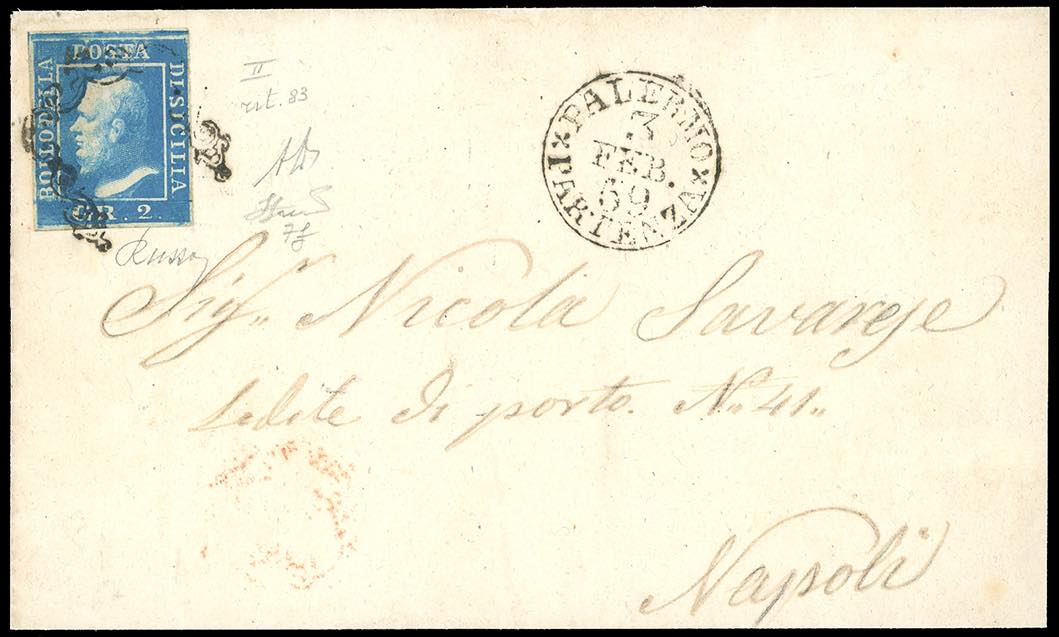 BOLLO DELLA POSTA DI SICILIA
GR. 2.
II
rit. 83
PALERMO
3
FEB.
59
PARTENZA
Russo
Sig.r Nicola Savarese
Sedile di porto. N.° 41.
Napoli